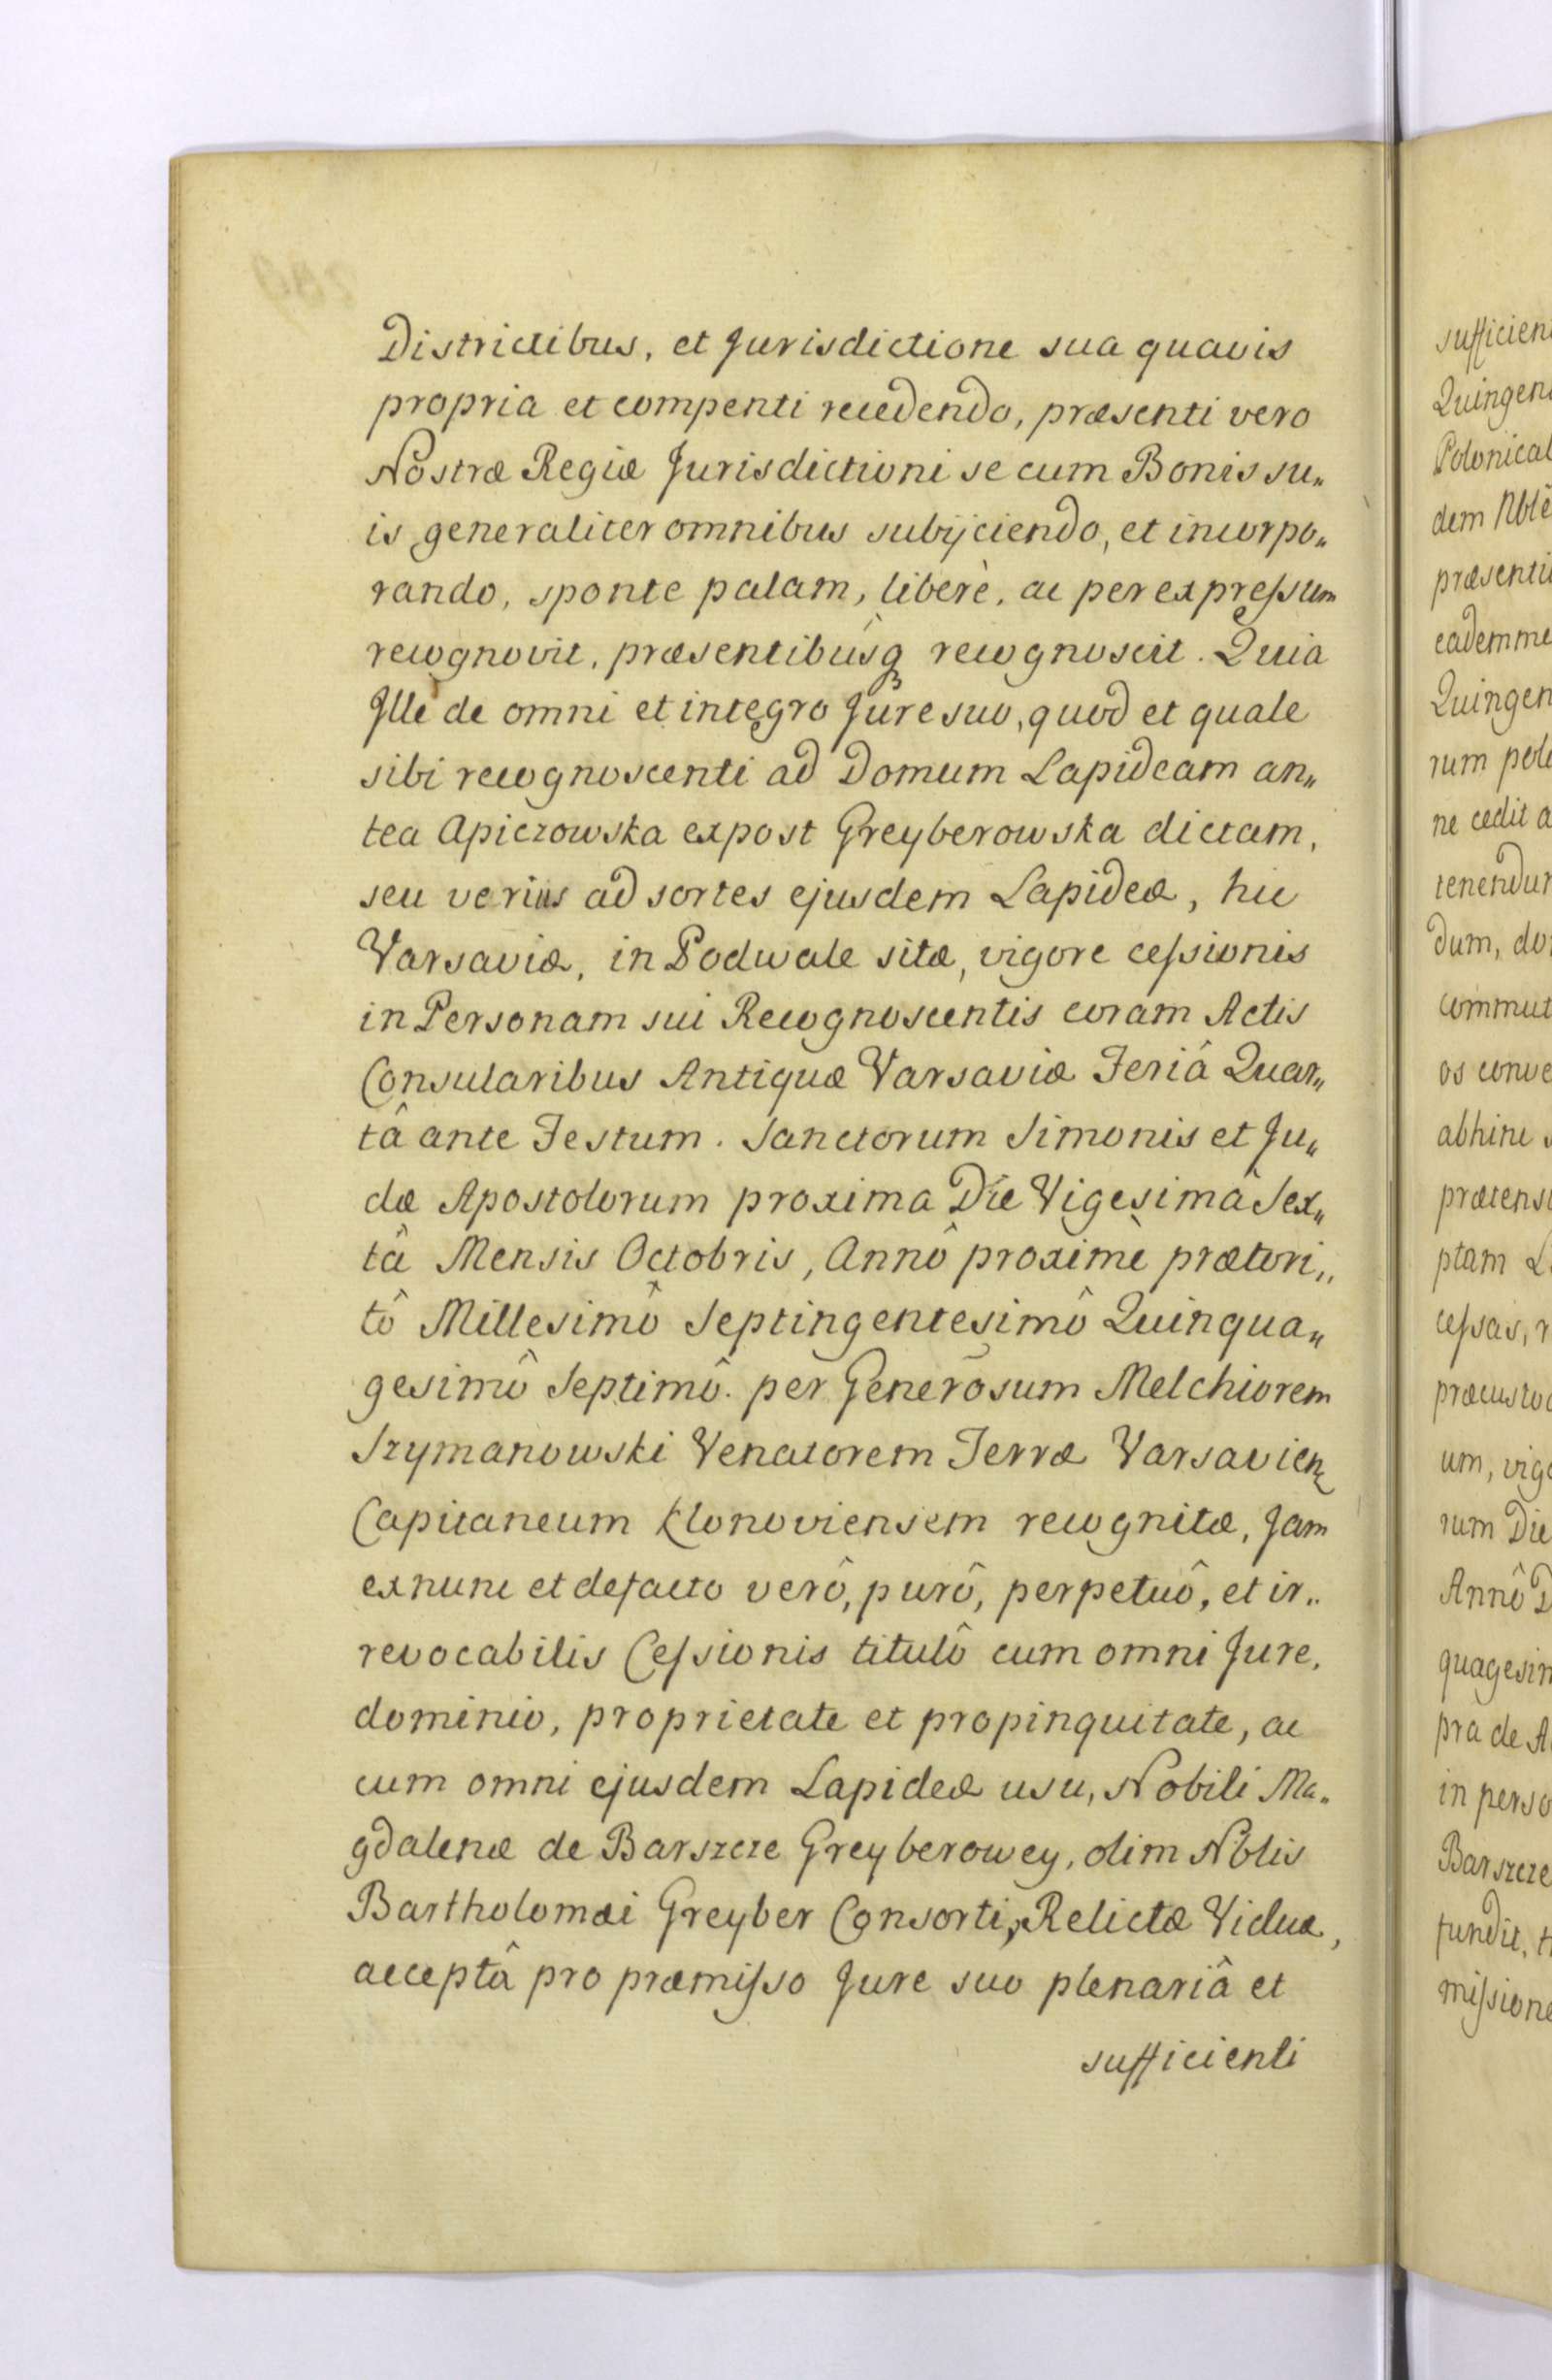 Districtibus, et Jurisdictione sua quavis
propria et compenti recedendo, præsenti vero
Nostræ Regiæ Jurisdictioni se cum Bonis su„
is generaliter omnibus subijciendo, et incorpo„
rando, sponte palam, liberè, ac per expressum
recognovit, præsentibusq recognoscit. Quia
Ille de omni et integro Jure suo, quod et quale
sibi recognoscenti ad Domum Lapideam an„
tea Apiczowska expost Greyberowska dictam,
seu verius ad sortes ejusdem Lapideæ, hic
Varsaviæ, in Podwale sitæ, vigore cessionis
in Personam sui Recognoscentis coram Actis
Consularibus Antiquæ Varsaviæ Feriâ Quar„
tâ ante Festum. Sanctorum Simonis et Ju„
dæ Apostolorum proxima Die Vigesimâ Sex„
tâ Mensis Octobris, Annô proximè præteri„
tô Millesimô Septingentesimô Quinqua„
gesimô Septimô. per Generosum Melchiorem
Szymanowski Venatorem Terræ Varsavien
Capitaneum Klonoviensem recognitæ, Jam
ex nunc et defacto verô, purô, perpetuô, et ir„
revocabilis Cessionis titulô cum omni Jure,
dominio, proprietate et propinquitate, ac
cum omni ejusdem Lapideæ usu, Nobili Ma„
gdalenæ de Barszcze Greyberowey, olim Nblis
Bartholomæi Greyber Consorti, Relictæ Viduæ,
acceptâ pro præmisso Jure suo plenariâ et
sufficienti
sufficien
Quingen
Polonical
dem Nblê
præsenti
eademme
Quingen
rum pol
ne cedit a
tenendu
dum, do
commut
os conve
abhinc s
prætens
ptam L
cessas, r
præcusto
um, vigo
rum Die
Annô D
quagesi
pra de A
in perso
Barszcze
fundit, t
missione